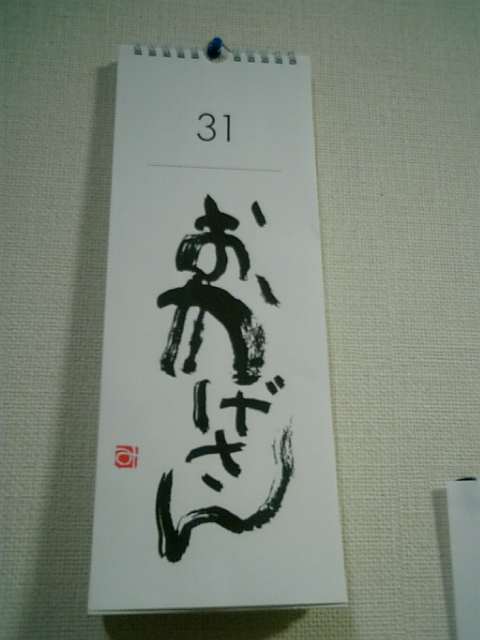 31
おかげさん